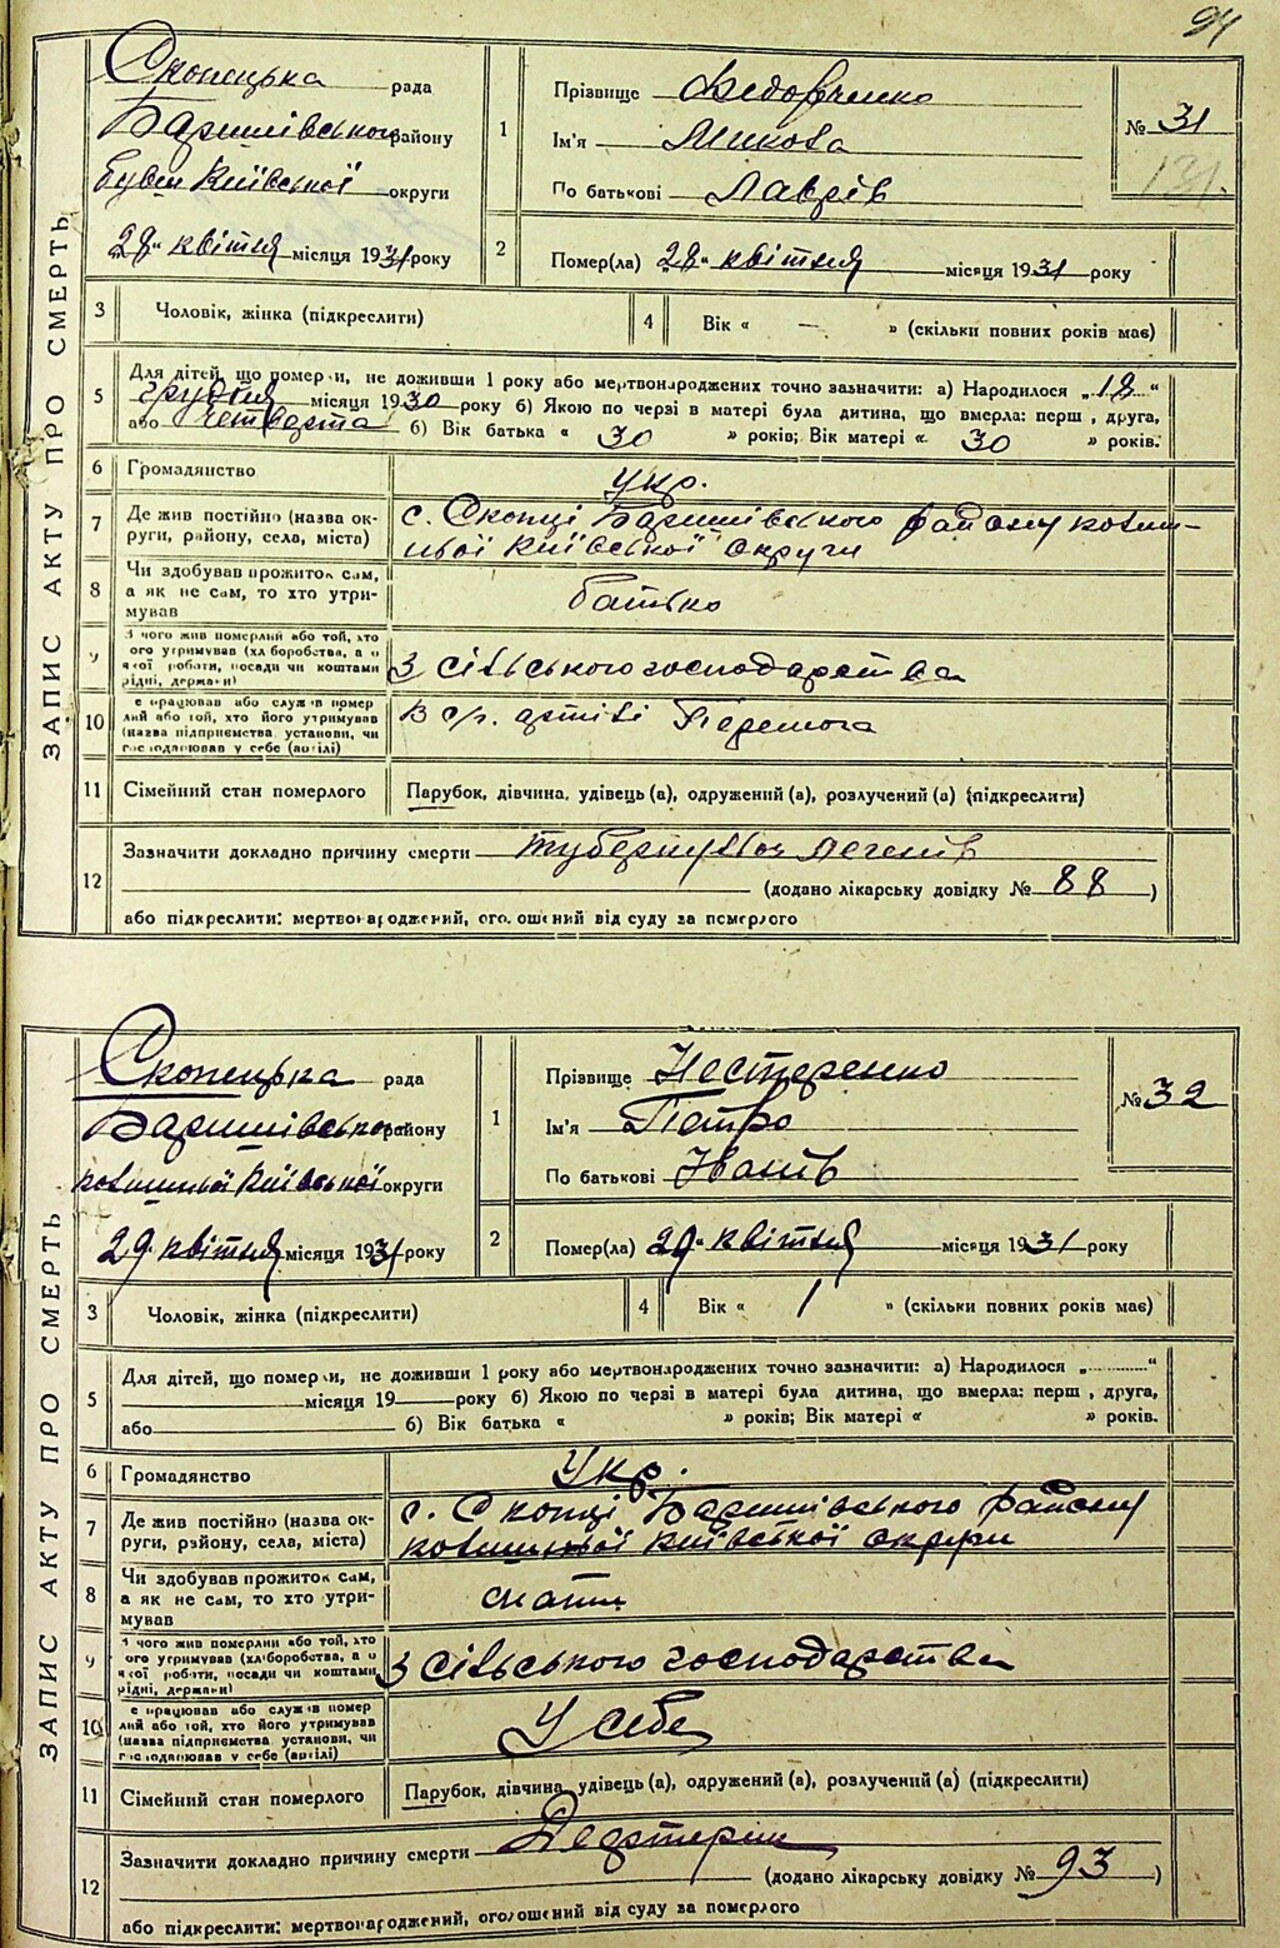 94
ЗАПИС АКТУ ПРО СМЕРТЬ
Скопецька рада
Баришівського району
бувш Київської округи
„28" квітня місяця 1931 року
1
Прізвище Федорченко
Ім'я Микола
По батькові Лаврів
№ 31
131.
2
Помер(ла) „28" квітня місяця 1931 року
3 Чоловік, жінка (підкреслити)
4 Вік « — » (скільки повних років має)
5 Для дітей, що померли, не доживши 1 року або мертвонароджених точно зазначити: а) Народилося „18"
грудня місяця 1930 року б) Якою по черзі в матері була дитина, що вмерла: перш , друга,
або четверта б) Вік батька « 30 » років; Вік матері « 30 » років.
6 Громадянство укр.
7 Де жив постійно (назва ок-
руги, району, села, міста)
с. Скопці Баришівського району колиш-
ньої Київської округи
8 Чи здобував прожиток сам,
а як не сам, то хто утри-
мував
батько
9 З чого жив померлий або той, хто
ого утримував (хліборобства, а о
якої роботи, посади чи коштами
рідні, держави)
З сільського господарства
10 е працював або служив помер
лий або той, хто його утримував
(назва підприємства установи, чи
господарював у себе (артілі)
В с/г. артілі Перемога
11 Сімейний стан померлого Парубок, дівчина, удівець (а), одружений (а), розлучений (а) (підкреслити)
12 Зазначити докладно причину смерти туберкульоз легенів
(додано лікарську довідку № 88 )
або підкреслити: мертвонароджений, оголошений від суду за померлого
ЗАПИС АКТУ ПРО СМЕРТЬ
Скопецька рада
Баришівського району
колишньої Київської округи
„29" квітня місяця 1931 року
1
Прізвище Нестеренко
Ім'я Петро
По батькові Іванів
№ 32
2
Помер(ла) „29" квітня місяця 1931 року
3 Чоловік, жінка (підкреслити)
4 Вік « 1 » (скільки повних років має)
5 Для дітей, що померли, не доживши 1 року або мертвонароджених точно зазначити: а) Народилося „ "
місяця 19 року б) Якою по черзі в матері була дитина, що вмерла: перш , друга,
або б) Вік батька « » років; Вік матері « » років.
6 Громадянство Укр.
7 Де жив постійно (назва ок-
руги, району, села, міста)
с. Скопці Баришівського району
колишньої Київської округи
8 Чи здобував прожиток сам,
а як не сам, то хто утри-
мував
9 З чого жив померлий або той, хто
ого утримував (хліборобства, а о
якої роботи, посади чи коштами
рідні, держави)
З сільського господарства
10 е працював або служив помер
лий або той, хто його утримував
(назва підприємства установи, чи
господарював у себе (артілі)
У себе
11 Сімейний стан померлого Парубок, дівчина, удівець (а), одружений (а), розлучений (а) (підкреслити)
12 Зазначити докладно причину смерти
(додано лікарську довідку № 93 )
або підкреслити: мертвонароджений, оголошений від суду за померлого